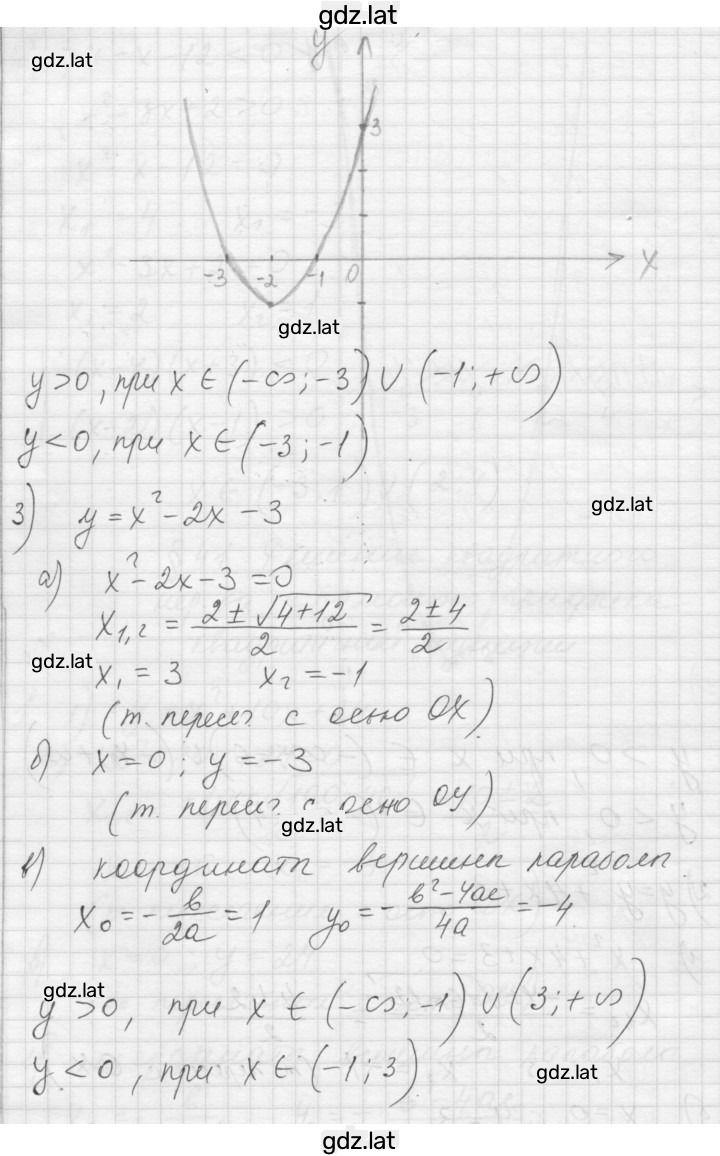 gdz.lat
gdz.lat
y
3
-3 -2 -1 0 x
gdz.lat
y > 0, при x ∈ (-∞; -3) ∪ (-1; +∞)
y < 0, при x ∈ (-3; -1)
gdz.lat
3) y = x² - 2x - 3
а) x² - 2x - 3 = 0
x₁,₂ = (2 ± √(4 + 12))/2 = (2 ± 4)/2
gdz.lat
x₁ = 3 x₂ = -1
(т. перес. с осью OX)
б) x = 0; y = -3
(т. перес. с осью OY)
gdz.lat
в) координаты вершины параболы
x₀ = -в/2a = 1 y₀ = -(в² - 4ac)/4a = -4
gdz.lat
y > 0, при x ∈ (-∞; -1) ∪ (3; +∞)
y < 0, при x ∈ (-1; 3)
gdz.lat
gdz.lat